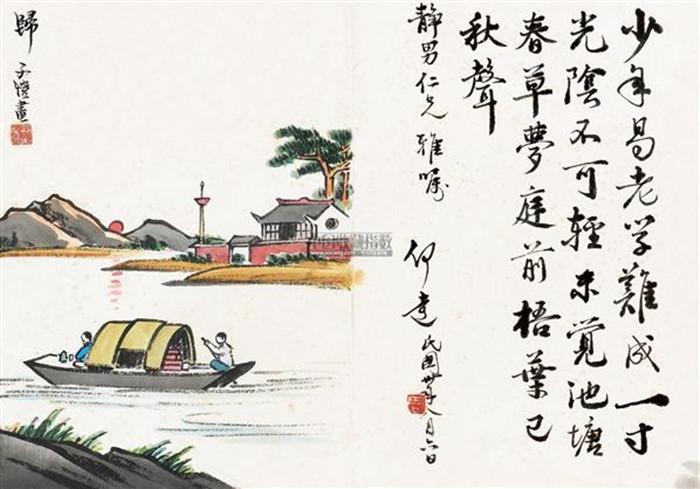 少年易老学難成一寸
光陰不可輕未覺池塘
春草夢庭前梧葉已
秋聲
静男仁兄雅囑
民國
歸
子愷畫